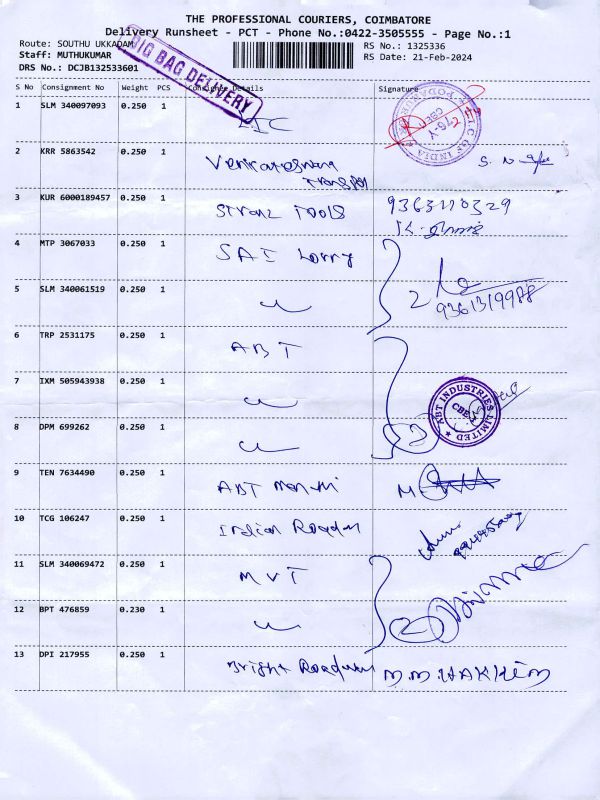 THE PROFESSIONAL COURIERS, COIMBATORE
Delivery Runsheet - PCT - Phone No.:0422-3505555 - Page No.:1
Route: SOUTHU UKKADAM
RS No.: 1325336
Staff: MUTHUKUMAR
RS Date: 21-Feb-2024
DRS No.: DCJB132533601
BIG BAG DELIVERY
S No Consignment No Weight PCS Consignee Details Signature
1 SLM 340097093 0.250 1 LIC
2 KRR 5863542 0.250 1 Venkateswara
Transport S. N
3 KUR 6000189457 0.250 1 Stranz Tools 9363110329
4 MTP 3067033 0.250 1 SAI Lorry
5 SLM 340061519 0.250 1 2 9361319988
6 TRP 2531175 0.250 1 ABT
7 IXM 505943938 0.250 1
ABT INDUSTRIES LIMITED
CBE
8 DPM 699262 0.250 1
9 TEN 7634490 0.250 1 ABT M
10 TCG 106247 0.250 1 Indian
11 SLM 340069472 0.250 1 MVT
12 BPT 476859 0.230 1 2
13 DPI 217955 0.250 1 Bright M.M.HAKKIM